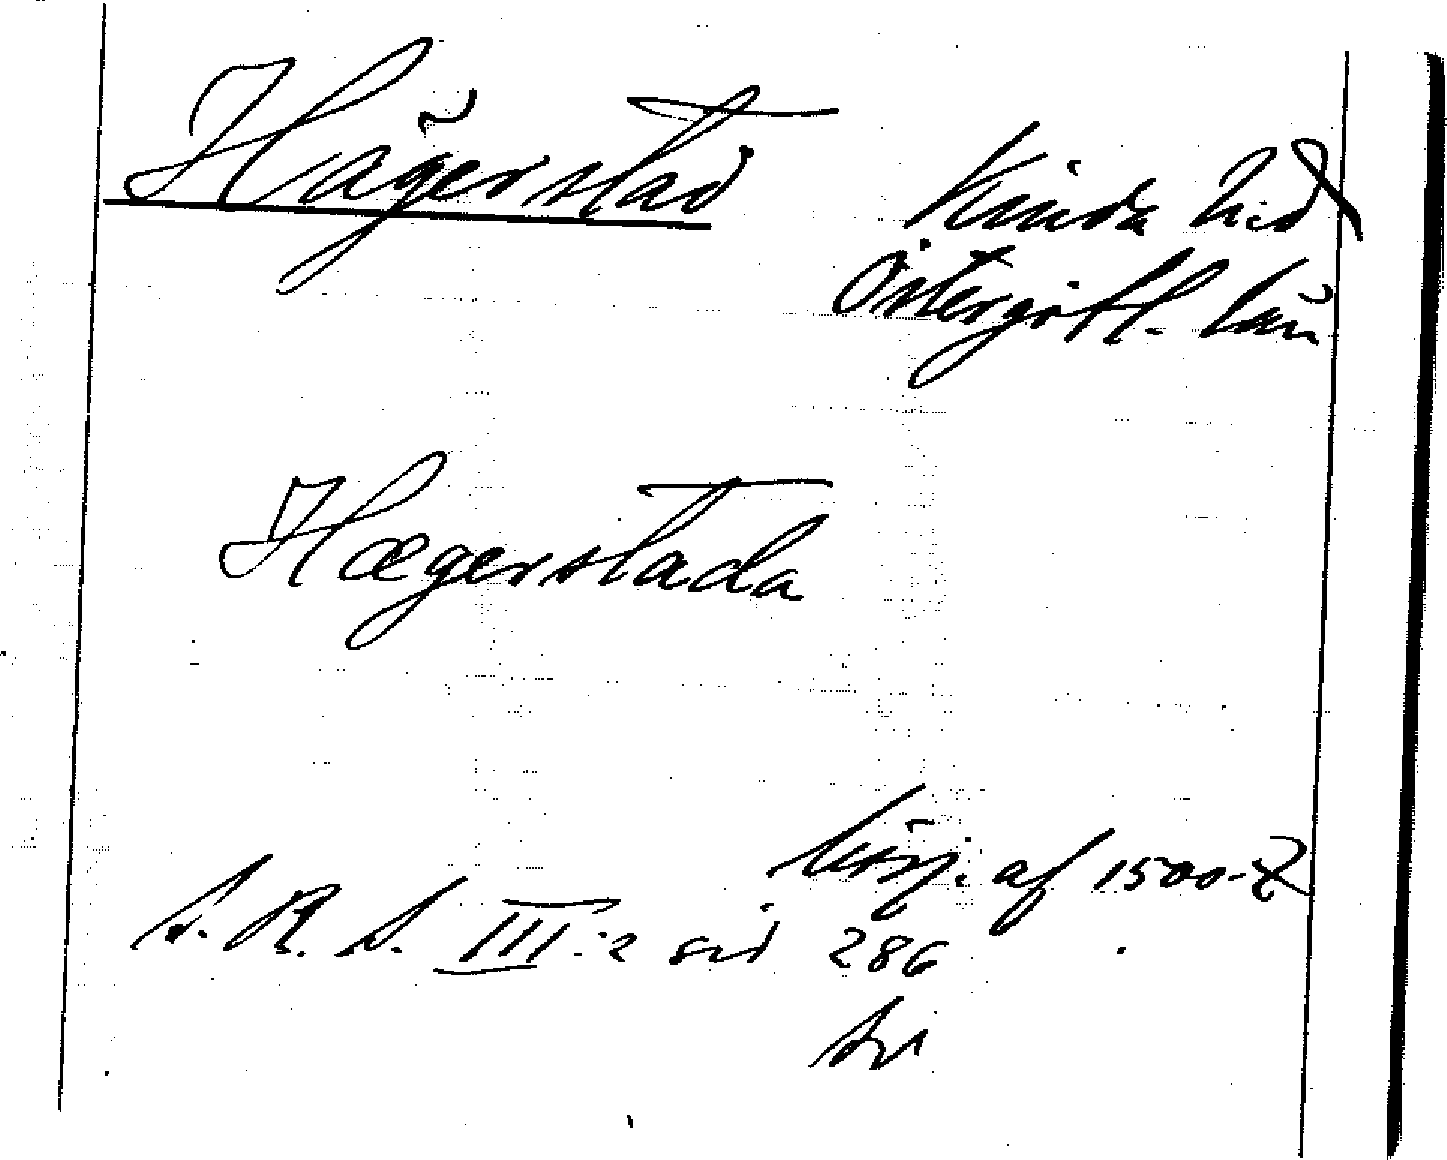 Hägerstad
Kinda hd
Östergötl. län
Hægerstada
af 1500-t
S. R. S. III:2 sid 286